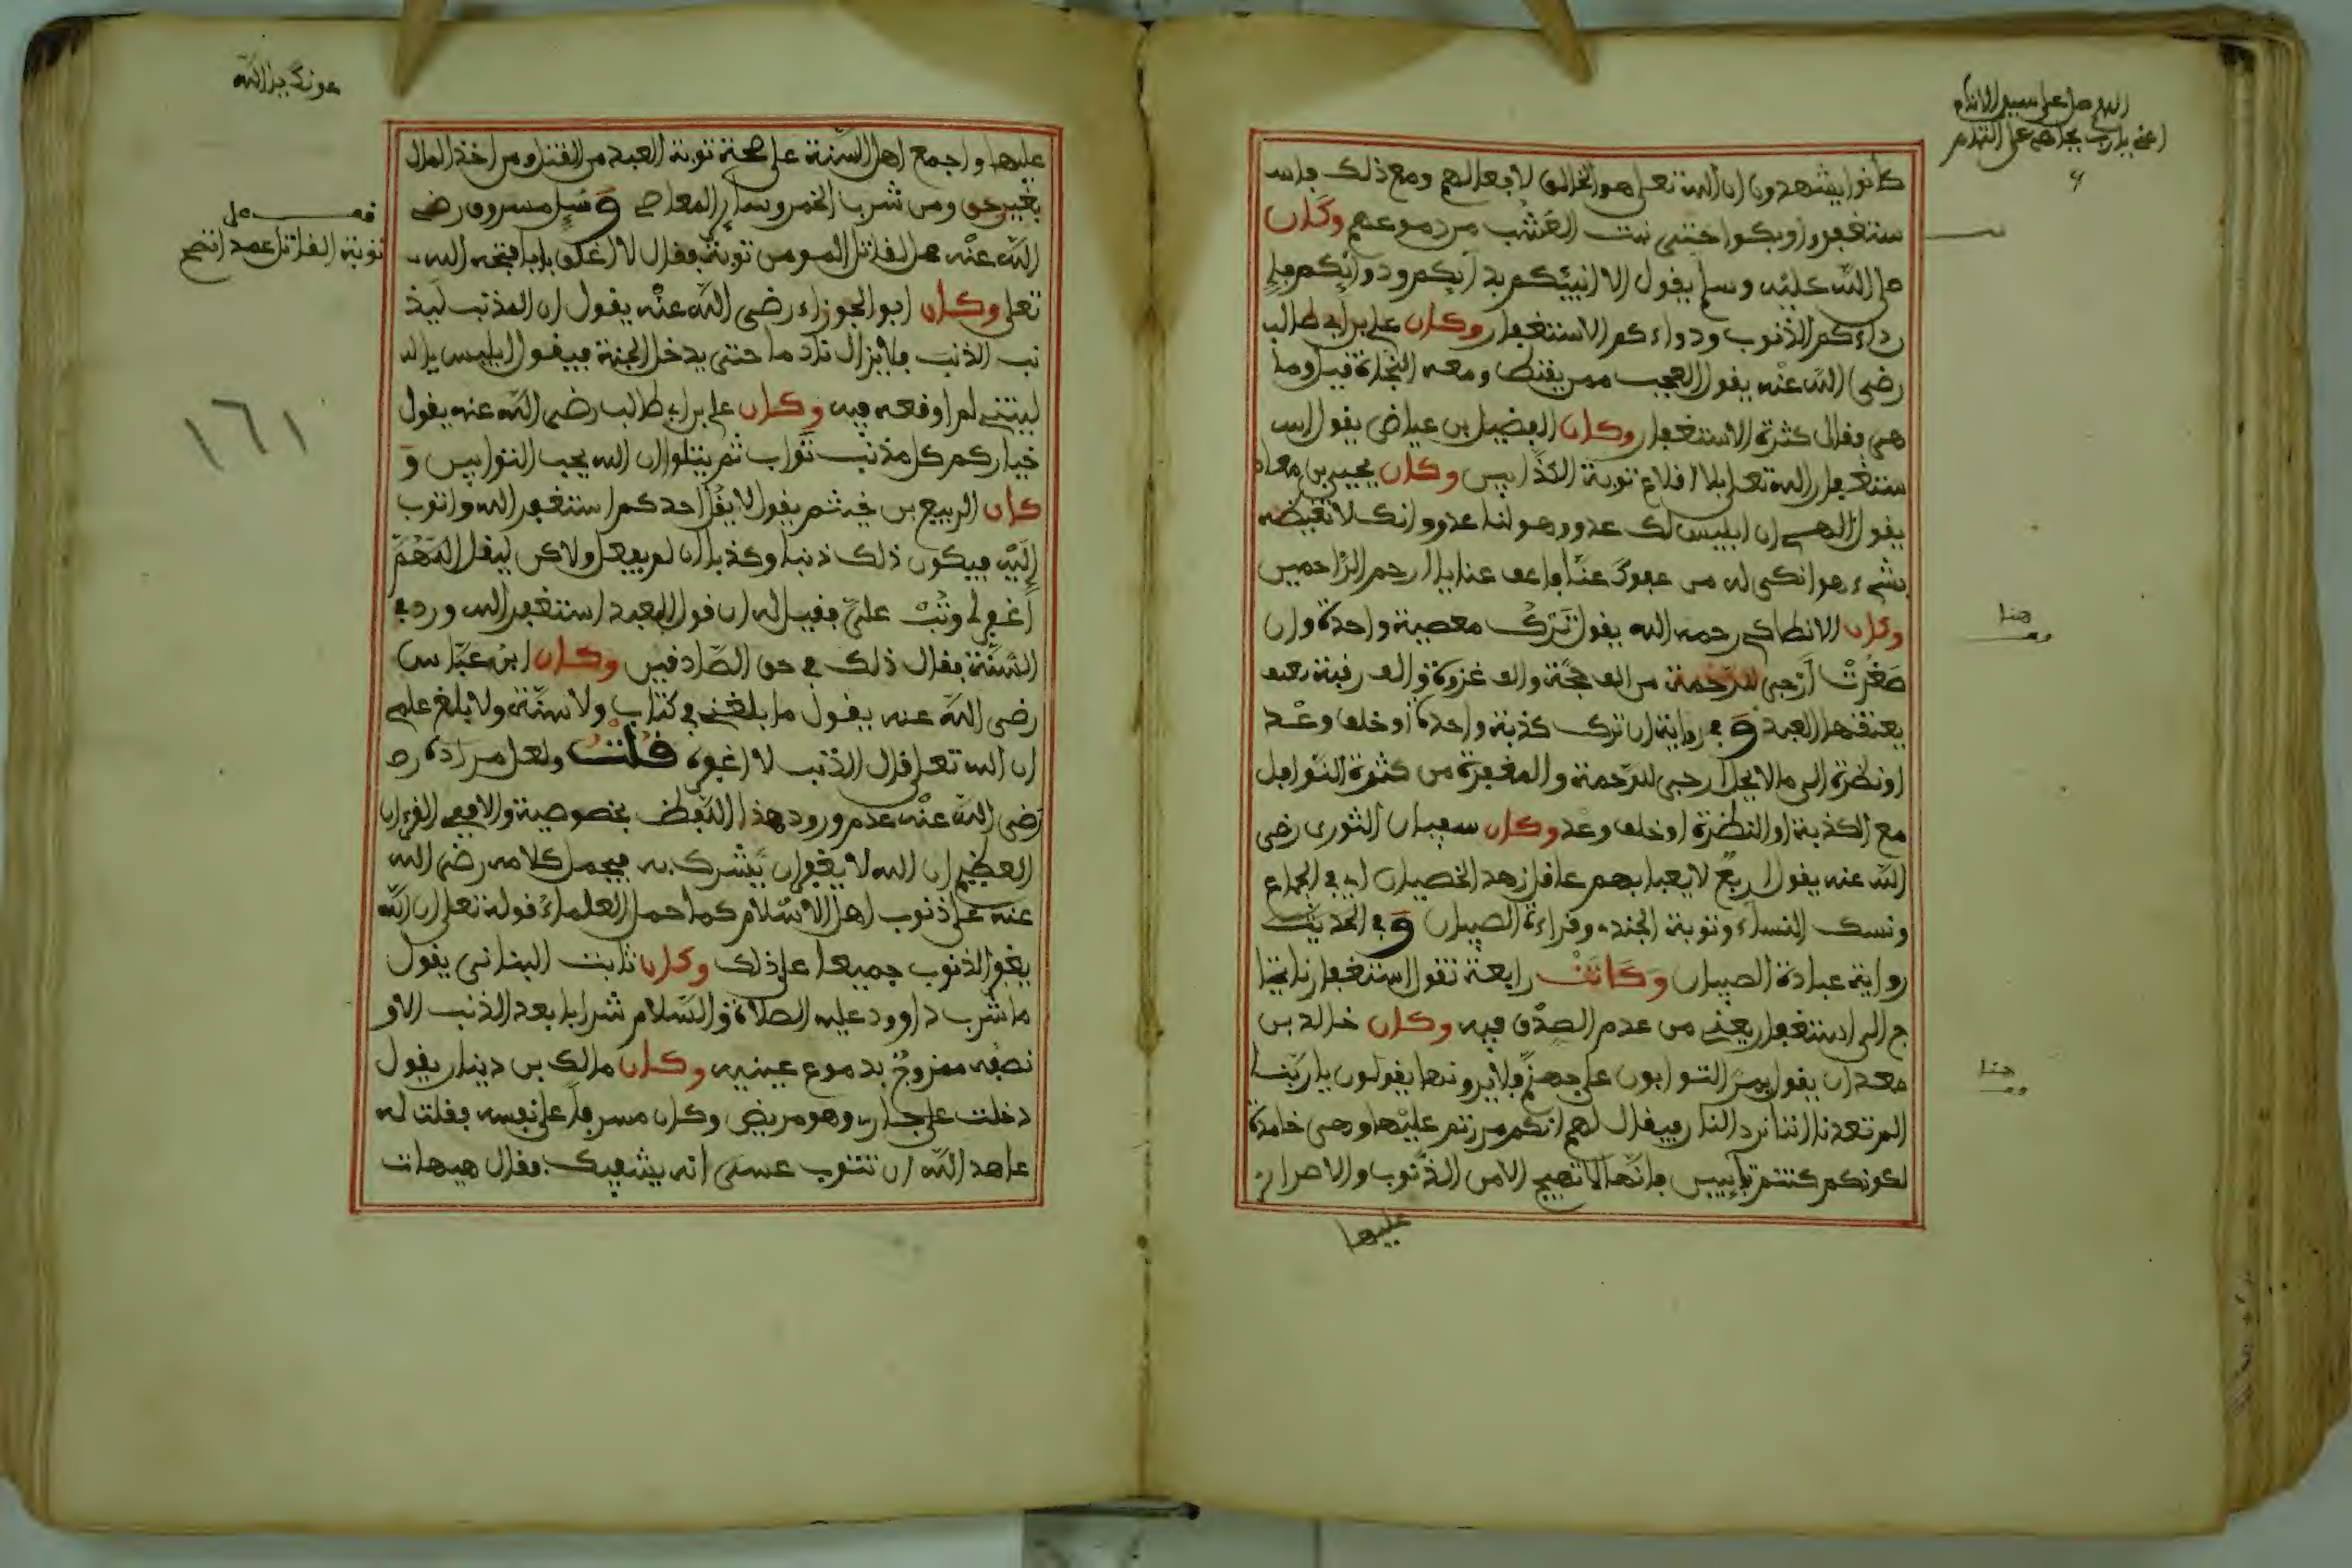 اللهم صل على سيد الانام
كانوا يشهدون ان الله تعلى هو الخالق لافعالهم ومع ذلك فاس
ستغفروا وبكوا حتى نبت العشب من دموعهم وكان
صلى الله عليه وسلم يقول الا انبيكم بدآيكم ودوآيكم فإ
داءكم الذنوب ودواءكم الاستغفار وكان علي بن ابي طالب
رضى الله عنه يقول العجب ممن يقنط ومعه النجاة قيل وما
هي فقال كثرة الاستغفار وكان الفضيل بن عياض يقول اس
ستغفار الله تعلى بلا اقلاع توبة الكذابين وكان يحيى بن معاذ
يقول الهي ان ابليس لك عدو وهو لنا عدو وانك لا تغيضه
بشيء هو انكى له من عفوك عنا فاعف عنا يا ارحم الراحمين
وكان الانطاكي رحمه الله يقول ترك معصية واحدة وان
صغرت أرجى للرحمة من الف حجة والف غزوة والف رقبة
يعتقها العبد وفي رواية ان ترك كذبة واحدة او خلف وعد
او نظرة الى ما لا يحل ارجى للرحمة والمغفرة من كثرة النوافل
مع الكذبة او النظرة او خلف وعد وكان سفيان الثوري رضى
الله عنه يقول اربع لا يعبا بهم عاقل زهد الخصيان اي في الجماع
ونسك النساء وتوبة الجند وقراءة الصبيان وفي الحديث
رواية عبادة الصبيان وكانت رابعة تقول استغفارنا يحتا
ج الى استغفار يعني من عدم الصدق فيه وكان خالد بن
معدان يقول يمر التوابون على جهنم فلا يرونها يقولون يا ربنا
الم تعدنا اننا نرد النار فيقال لهم انكم مررتم عليها وهي خامدة
لكونكم كنتم تآيبين فانها لا تهيج الا من الذنوب والاصرار
عليها
هنا
هنا
عونك يا الله
عليها واجمع اهل السنة على صحة توبة العبد من القتل ومن اخذ المال
بغير حق ومن شرب الخمر وساير المعاصي وسيل مسروق رضي
الله عنه هل لقاتل المومن توبة فقال لا اغلق بابا فتحه الله
تعلى وكان ابو الجوزاء رضى الله عنه يقول ان المذنب ليذ
نب الذنب فلا يزال نادما حتى يدخل الجنة فيقول ابليس يا
ليتني لم اوقعه فيه وكان علي بن ابي طالب رضى الله عنه يقول
خياركم كل مذنب تواب ثم يتلوا ان الله يحب التوابين و
كان الربيع بن خيثم يقول لا يقل احدكم استغفر الله واتوب
إليه فيكون ذلك ذنبا وكذبا ان لم يفعل ولاكن ليقل اللهم
اغفر لي وتب علي فقيل له ان قول العبد استغفر الله ورد في
السنة فقال ذلك في حق الصادقين وكان ابن عباس
رضى الله عنه يقول ما بلغني في كتاب ولا سنة ولا بلغ علمي
ان الله تعلى قال الذنب لا اغفره قلت ولعل مراده رض
رضى الله عنه عدم ورود هذا اللفظ بخصوصية والا ففي القرءان
العظيم ان الله لا يغفر ان يشرك به فيحمل كلامه رضى الله
عنه على ذنوب اهل الاسلام كما حمل العلماء قوله تعلى ان الله
يغفر الذنوب جميعا على ذلك وكان ثابت البناني يقول
ما شرب داوود عليه الصلاة والسلام شرابا بعد الذنب الا و
نصفه ممزوج بدموع عينيه وكان مالك بن دينار يقول
دخلت على جار وهو مريض وكان مسرفا على نفسه فقلت له
عاهد الله ان تتوب عسى انه يشفيك فقال هيهات
فصل
توبة القاتل عمدا تصح
١٦١